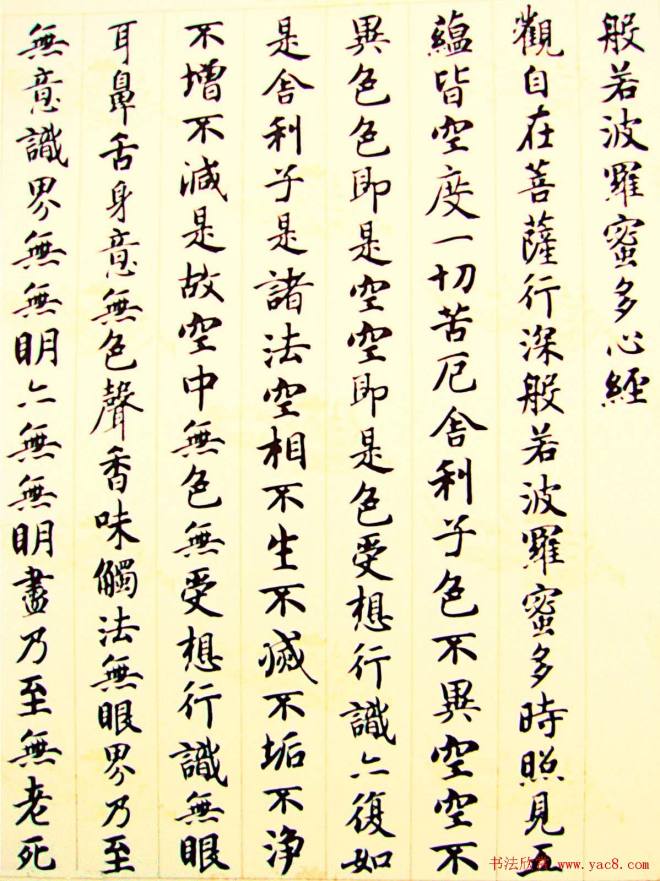 般若波羅蜜多心經
觀自在菩薩行深般若波羅蜜多時照見五
蘊皆空度一切苦厄舍利子色不異空空不
異色色即是空空即是色受想行識亦復如
是舍利子是諸法空相不生不滅不垢不淨
不增不減是故空中無色無受想行識無眼
耳鼻舌身意無色聲香味觸法無眼界乃至
無意識界無無明亦無無明盡乃至無老死
书法欣赏 www.yac8.com